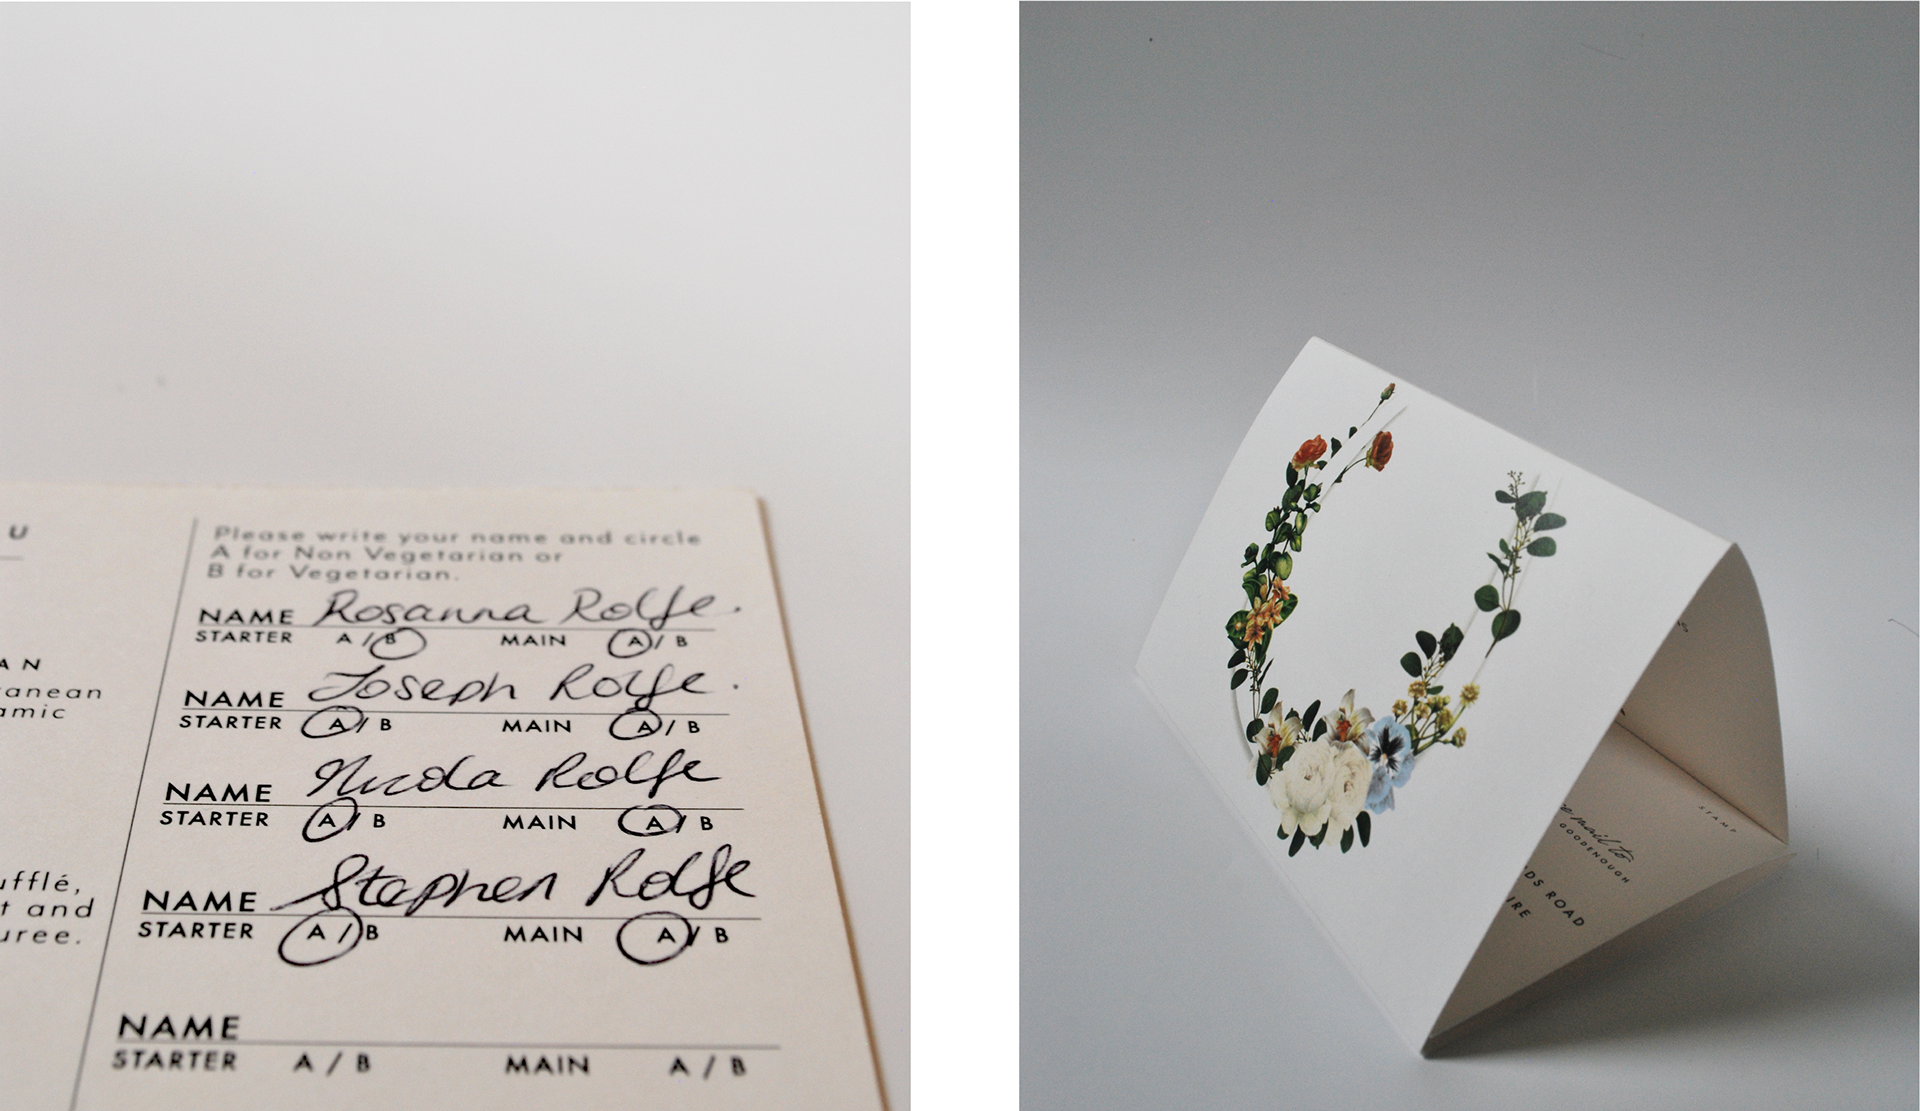 U
AN
ranean
amic
ufflé,
t and
uree.
Please write your name and circle
A for Non Vegetarian or
B for Vegetarian.
NAME Rosanna Rolfe.
STARTER A / B MAIN A / B
NAME Joseph Rolfe.
STARTER A / B MAIN A / B
NAME Nicola Rolfe
STARTER A / B MAIN A / B
NAME Stephen Rolfe
STARTER A / B MAIN A / B
NAME
STARTER A / B MAIN A / B
STAMP
e mail to
GOODENOUGH
DS ROAD
IRE